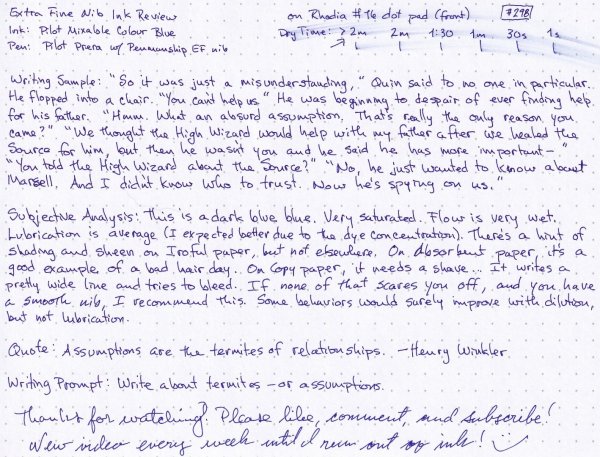 Extra Fine Nib Ink Review on Rhodia #16 dot pad (front) #298
Ink: Pilot Mixable Colour Blue Dry Time: >2m 2m 1:30 1m 30s 1s
Pen: Pilot Prera w/ Penmanship EF nib
Writing Sample: "So it was just a misunderstanding," Quin said to no one in particular.
He flopped into a chair. "You can't help us." He was beginning to despair of ever finding help
for his father. "Hmm. What an absurd assumption. That's really the only reason you
came?" "We thought the High Wizard would help with my father after we healed the
Source for him, but then he wasn't you and he said he has more important–"
"You told the High Wizard about the Source?" "No, he just wanted to know about
Marsell. And I didn't know who to trust. Now he's spying on us."
Subjective Analysis: This is a dark blue blue. Very saturated. Flow is very wet.
Lubrication is average (I expected better due to the dye concentration). There's a hint of
shading and sheen on Iroful paper, but not elsewhere. On Absorbent paper, it's a
good example of a bad hair day. On Copy paper, it needs a shave... It writes a
pretty wide line and tries to bleed. If none of that scares you off, and you have
a smooth nib, I recommend this. Some behaviors would surely improve with dilution,
but not lubrication.
Quote: Assumptions are the termites of relationships. –Henry Winkler
Writing Prompt: Write about termites – or assumptions.
Thanks for watching! Please like, comment, and subscribe!
New video every week until I run out of ink!